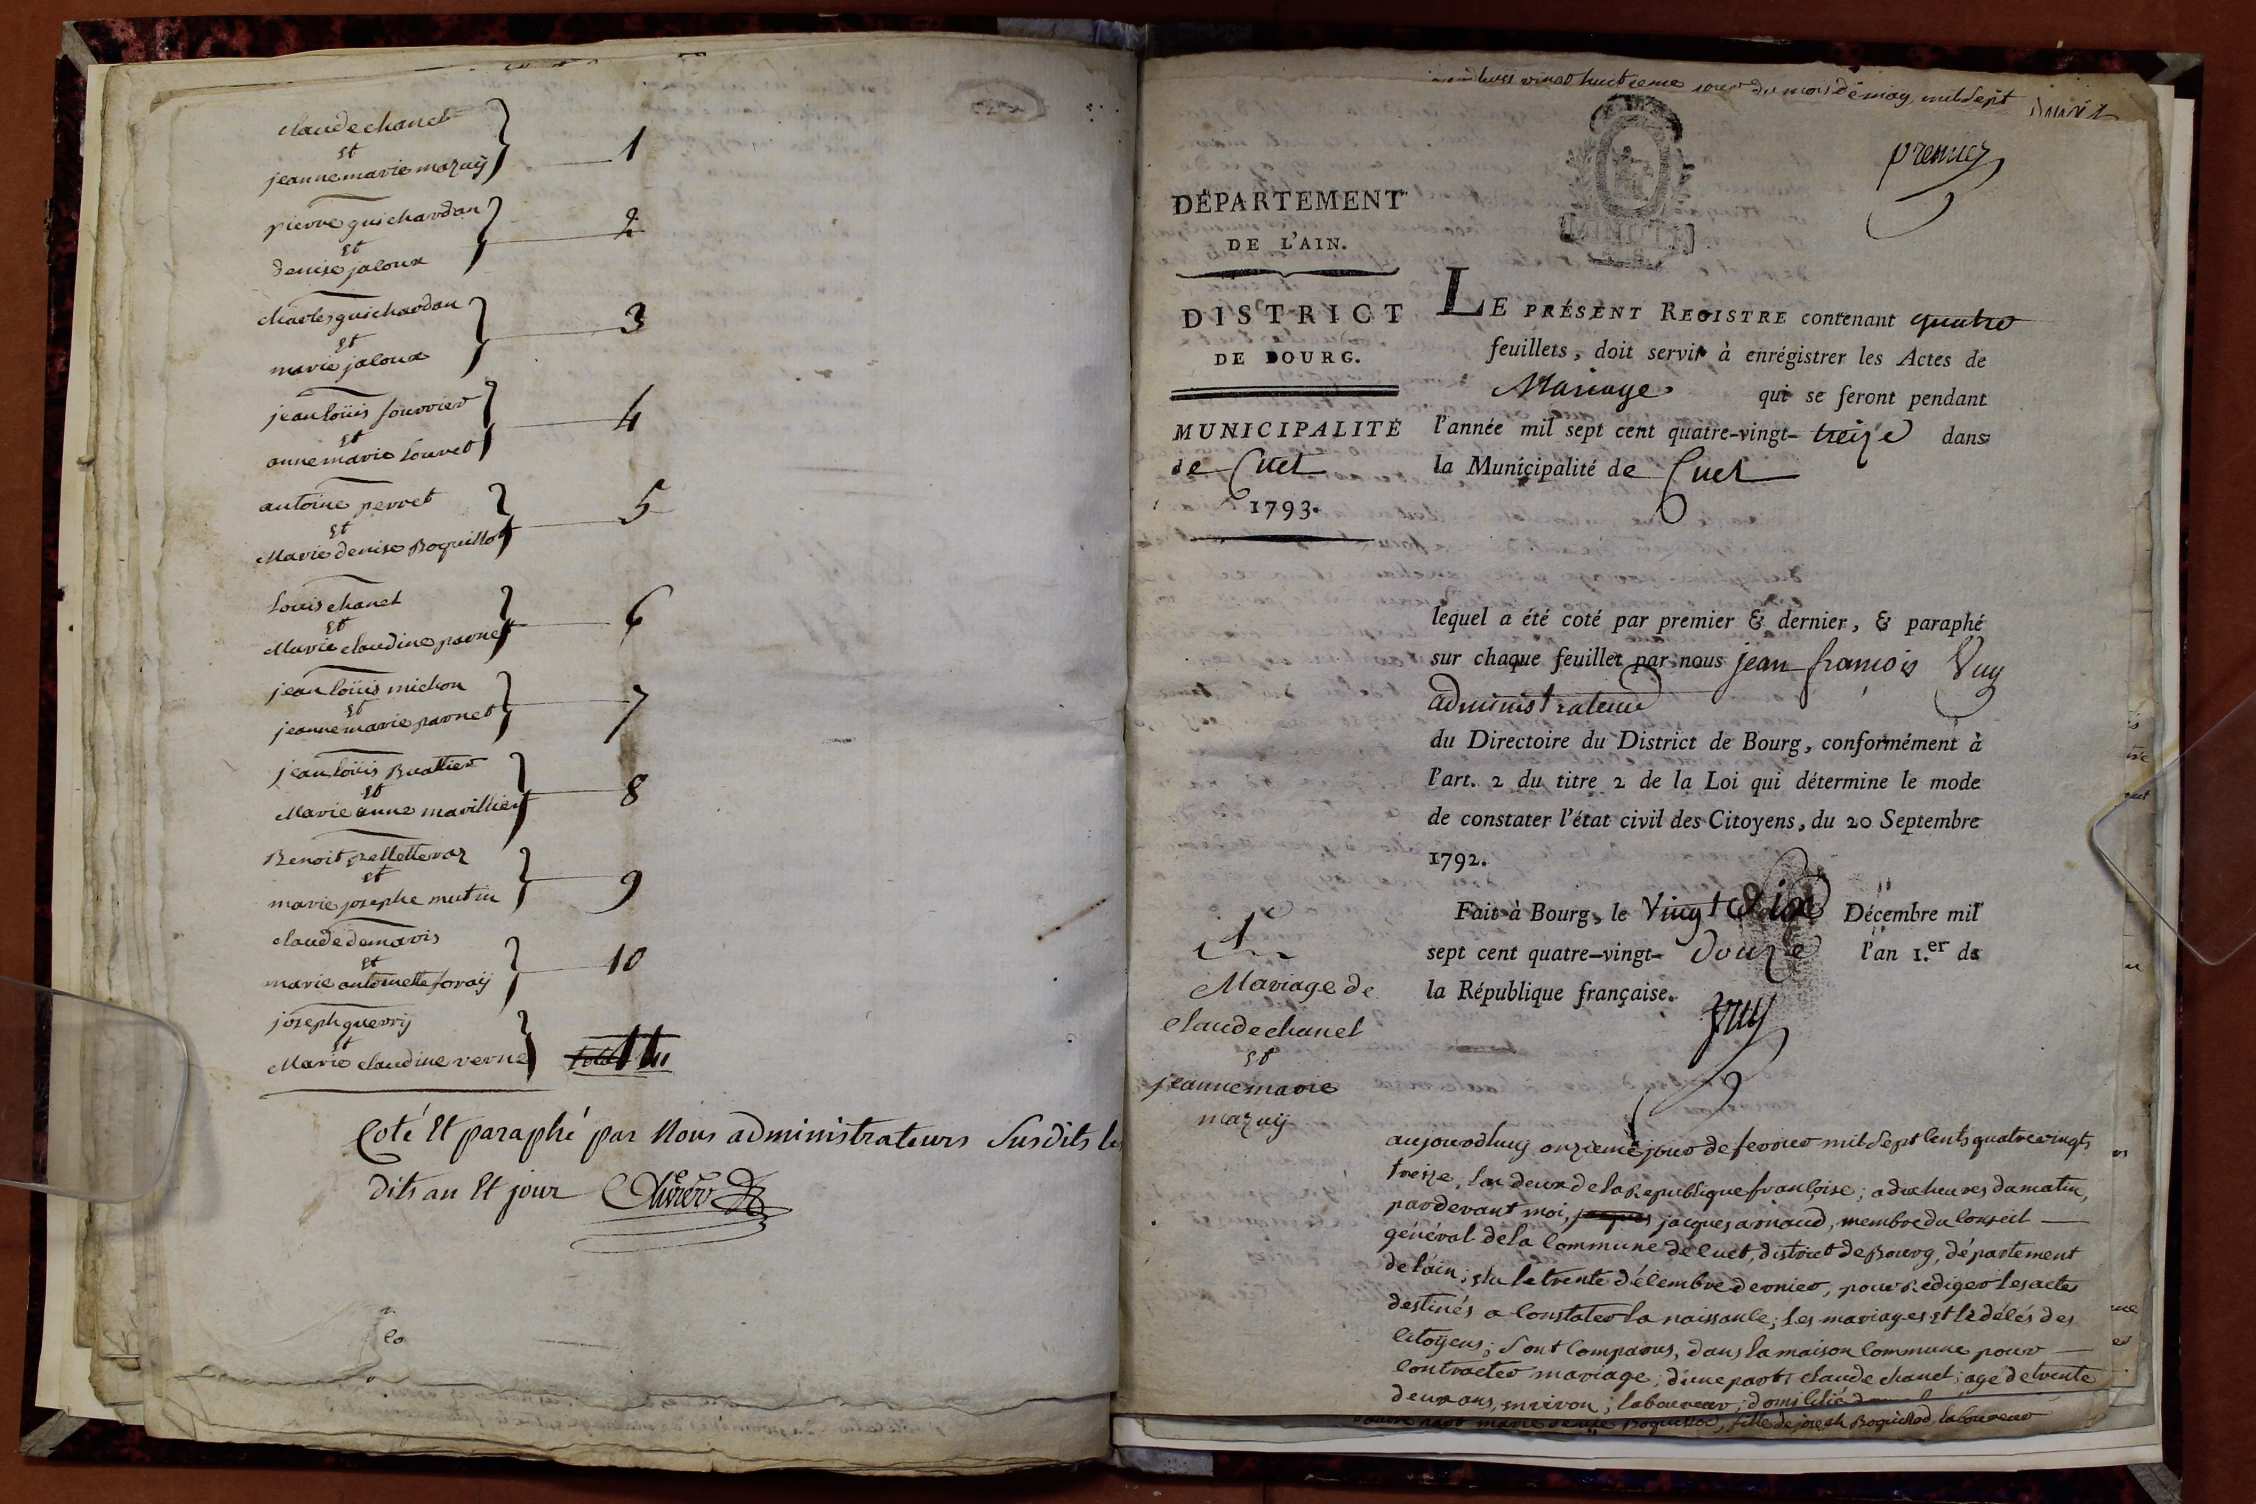 claude chanel
et
jeanne marie mazuÿ
1
pierre guichardan
et
denise jaloux
2
charles guichardan
et
marie jaloux
3
jean loüis fouvrier
et
anne marie louvet
4
antoine perret
et
Marie denise Boquillot
5
Louis chanel
et
Marie claudine parnet
6
jean loüis michon
et
jeanne marie parnet
7
jean loüis Buattier
et
Marie anne mavillier
8
Benoit
et
marie josephe mutin
9
claude demaris
et
marie antoinette foraÿ
10
joseph guerrÿ
et
Marie claudine verne
11
Coté Et paraphé par Nous administrateurs Susdits les
dits an Et jour
vingt huitieme jour du mois de may, mil sept
premier
MINUTE
DÉPARTEMENT
DE L'AIN.
DISTRICT
DE BOURG.
MUNICIPALITÉ
de Cuet
1793.
LE PRÉSENT REGISTRE contenant quatre
feuillets, doit servir à enrégistrer les Actes de
Mariage qui se feront pendant
l'année mil sept cent quatre-vingt-treize dans
la Municipalité de Cuet
lequel a été coté par premier & dernier, & paraphé
sur chaque feuillet par nous jean françois Vuy
administrateur
du Directoire du District de Bourg, conformément à
l'art. 2 du titre 2 de la Loi qui détermine le mode
de constater l'état civil des Citoyens, du 20 Septembre
1792.
Fait à Bourg, le Vingt Six Décembre mil
sept cent quatre-vingt-douze l'an 1.er de
la République française.
Vuy
1
Mariage de
claude chanel
et
jeanne marie
mazuÿ
aujourdhuy onzieme jour de fevrier mil Sept Cents quatrevingts
treize, l'an deux de la Republique françoise; a dix heures du matin,
pardevant moi, jacques arnaud, membre du Conseil
général de la Commune de Cuet, district de Bourg, département
de l'ain; élu le trente décembre dernier, pour Rediger les actes
destinés a Constater la naissance, les mariages et le décés des
Citoÿens; Sont Comparus, dans la maison Commune pour
Contracter mariage; d'une part, claude chanel, agé de trente
deux ans, environ; laboureur; domicilié
marie denise Boquillod, fille de joseph Boquillod, laboureur